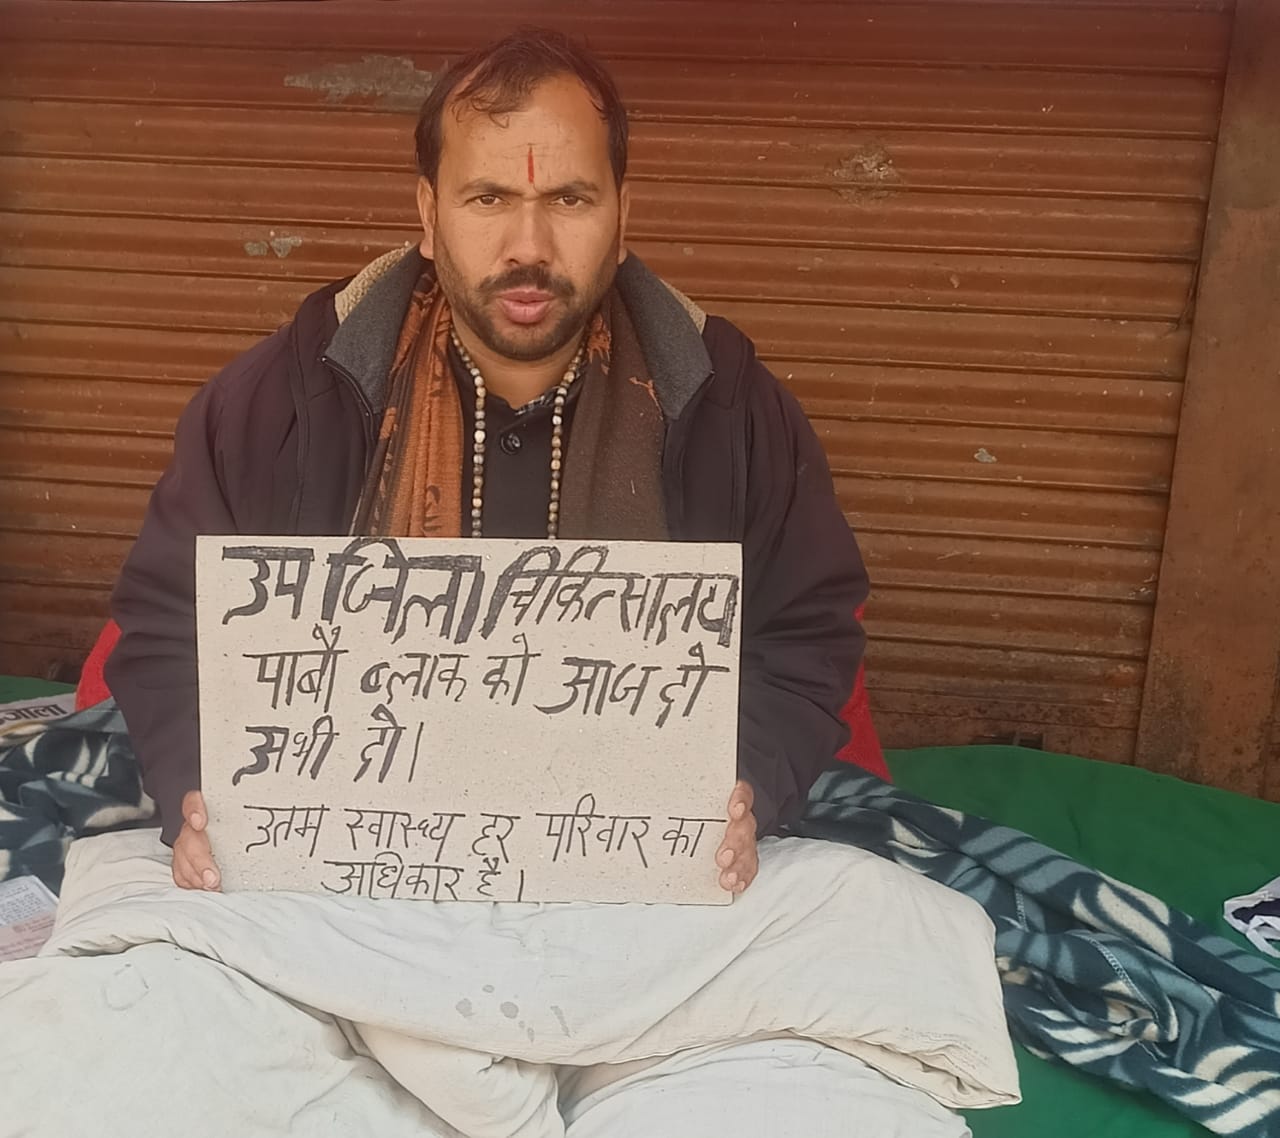 उप जिला चिकित्सालय
पाबौ ब्लाक को आज दो
अभी दो।
उतम स्वास्थ्य हर परिवार का
अधिकार है।